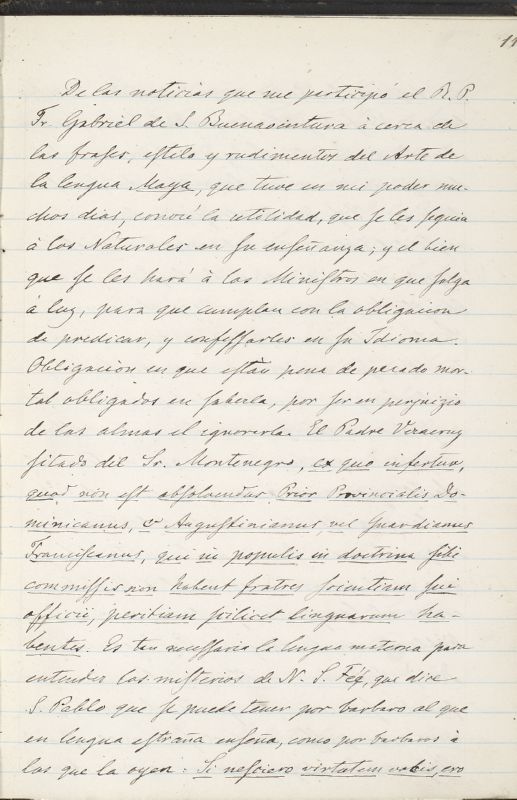 De las noticias que me participó el R. P.
Fr. Gabriel de S. Buenaventura à cerca de
las frases, estilo y rudimentos del Arte de
la lengua Maya, que tuve en mi poder mu-
chos dias, conocí la utilidad, que se les seguia
à los Naturales en su enseñanza; y el bien
que se les hará à los Ministros en que salga
á luz, para que cumplan con la obligacion
de predicar, y confessarles en su Idioma.
Obligacion en que estàn pena de pecado mor-
tal obligados en saberla, por ser en perjuizio
de las almas el ignorarla. El Padre Veracruz
sitado del Sr. Montenegro, ex quo infertur,
quod non est absolvendus Prior Provincialis Do-
minicanus, & Augustinianus, vel Guardianus
Franciscanus, qui in populis in doctrina sibi
commissis non habent fratres scientiam sui
officii, peritiam scilicet linguarum ha-
bentes. Es tan necessaria la lengua materna para
entender los misterios de N. S. Fé, que dice
S. Pablo que se puede tener por barbaro al que
en lengua estraña enseña, como por barbaros à
los que la oyen: Si nesciero virtutem vocis, ero